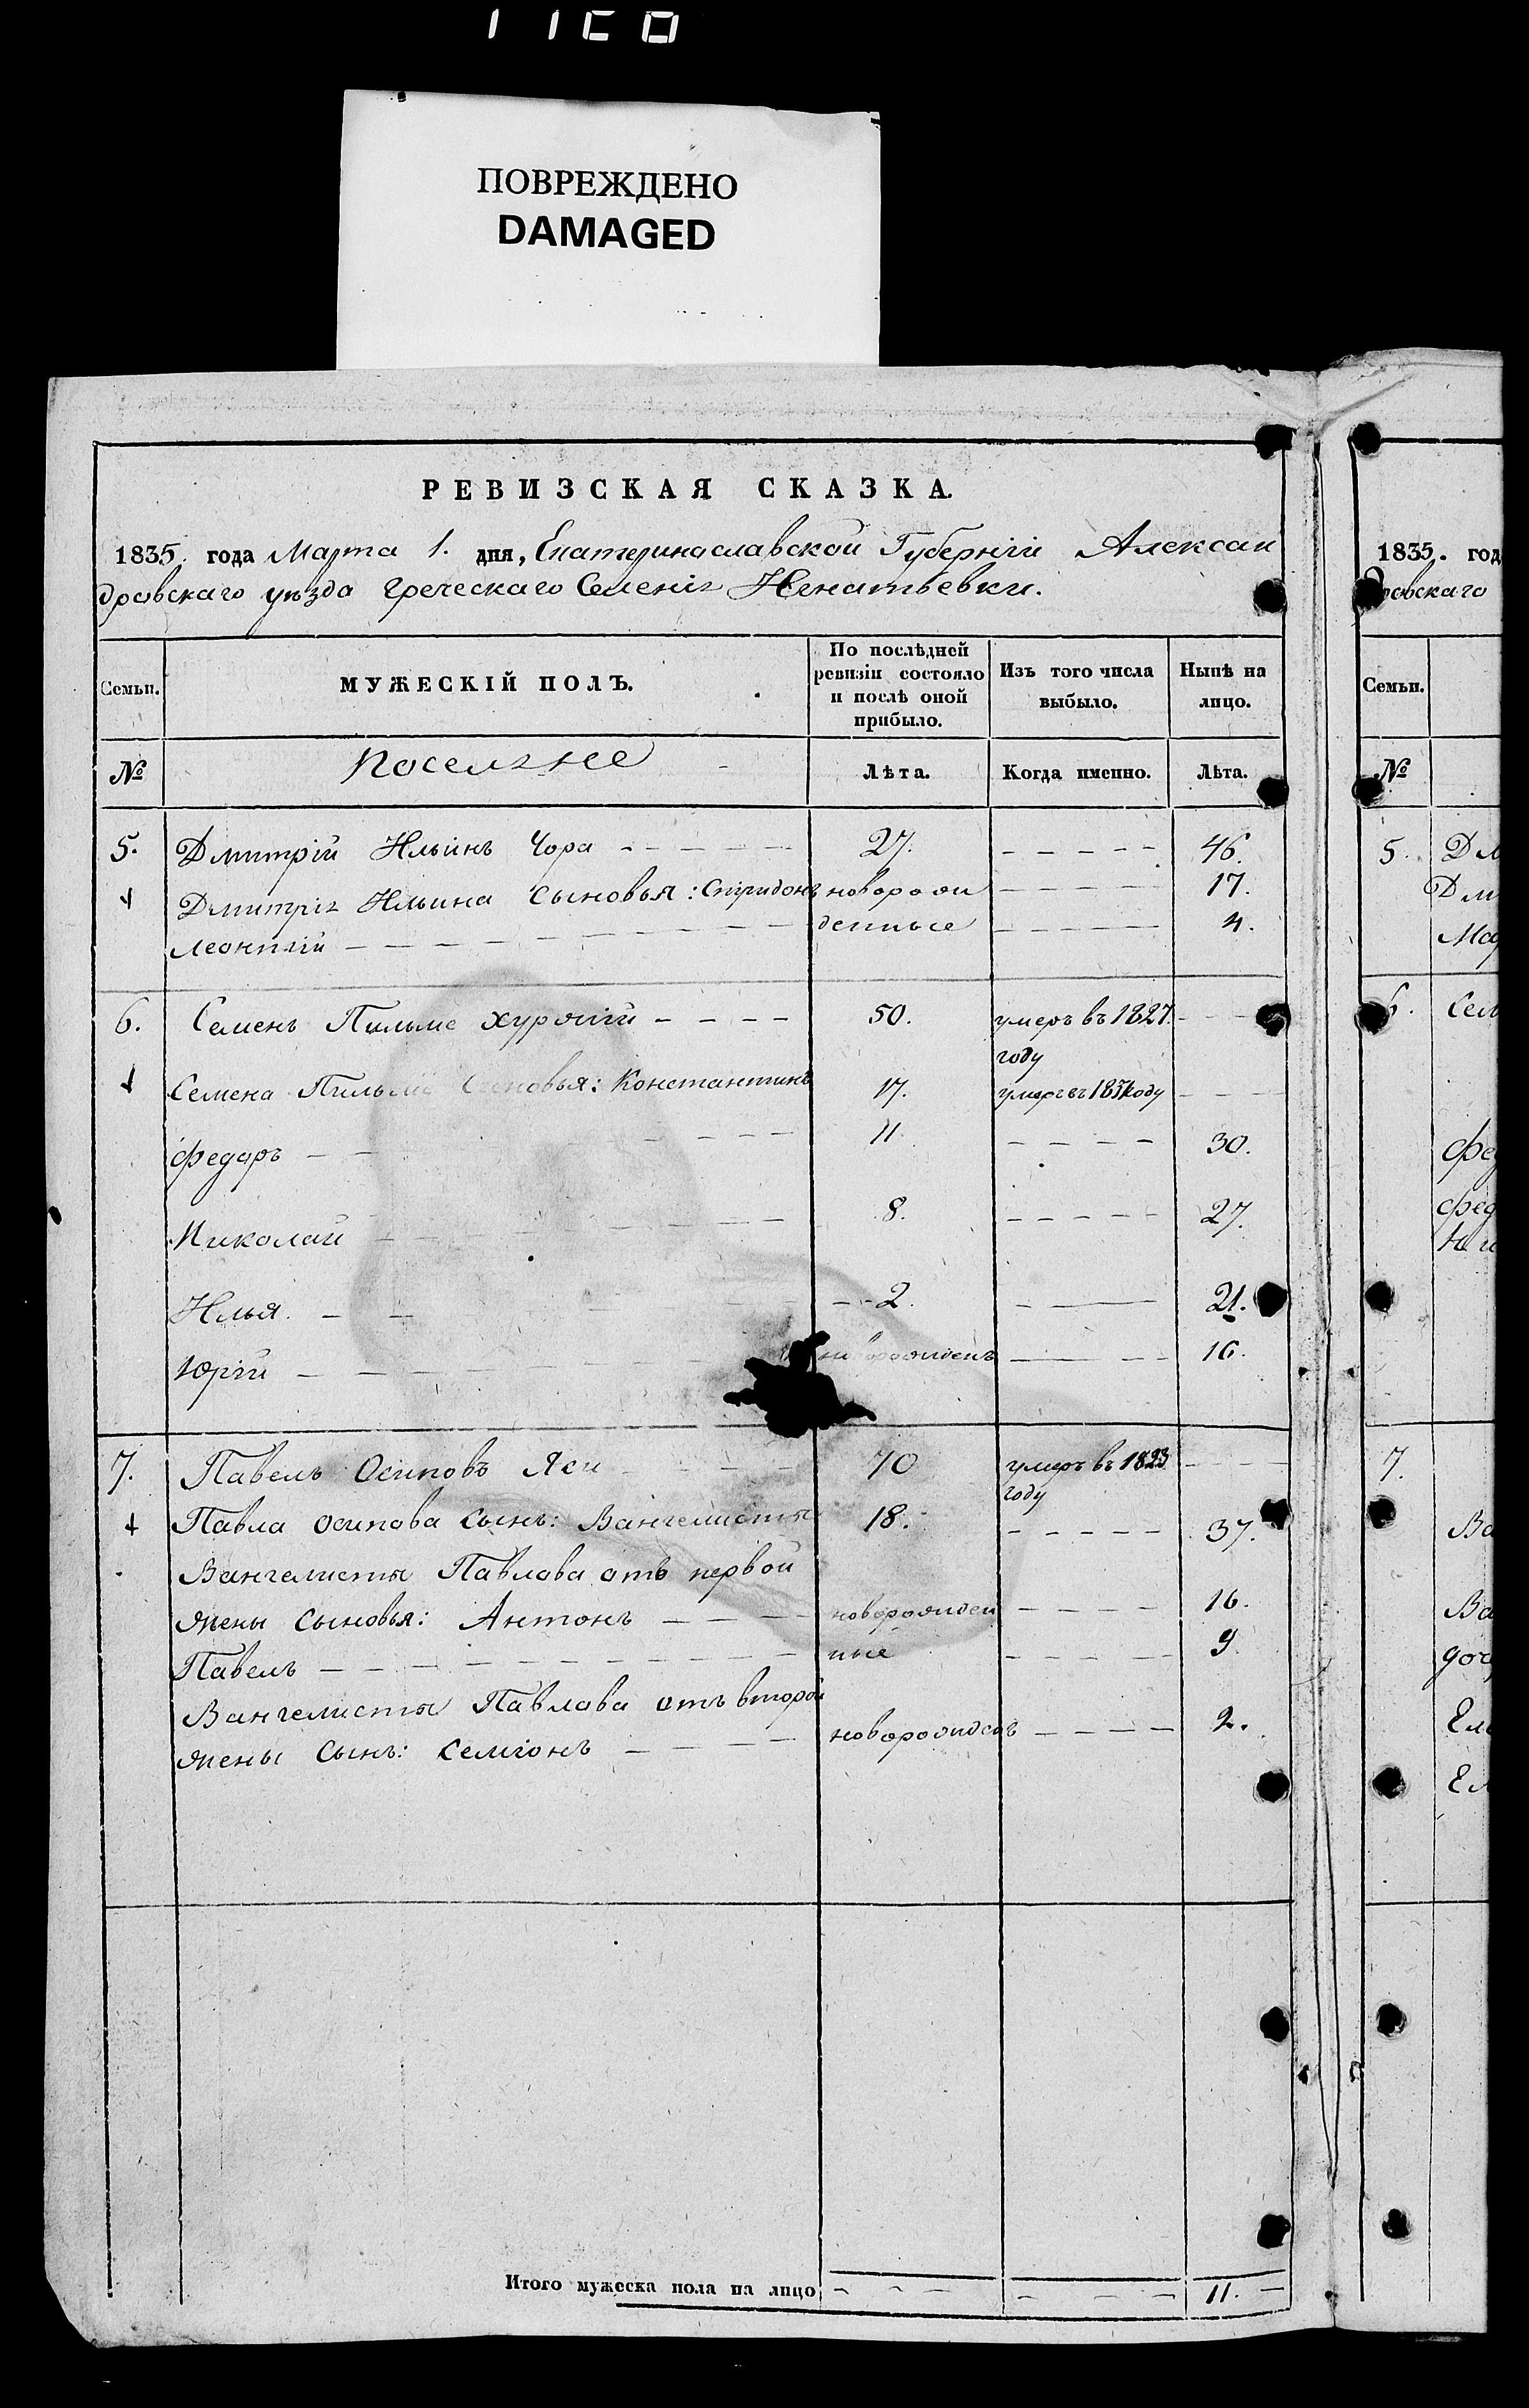 ПОВРЕЖДЕНО
DAMAGED
РЕВИЗСКАЯ СКАЗКА.
1835. года Марта 1. дня, Екатеринославской Губерніи Алексан
дровскаго уѣзда греческаго Селенія Игнатьевки.
Семьи. МУЖЕСКІЙ ПОЛЪ. По послѣдней ревизіи состояло и послѣ оной прибыло. Изъ того числа выбыло. Нынѣ на лицо.
№ Поселяне Лѣта. Когда именно. Лѣта.
5. Дмитрій Ильинъ Чора 27. 46.
Дмитрія Ильина Сыновья: Спиридонъ новорож 17.
Леонтій денные 4.
6. Семенъ Пильме Хуржій 50. умеръ въ 1827.
году
Семена Пильме Сыновья: Константинъ 17. умеръ въ году
Федоръ 11. 30.
Николай 8. 27.
Илья. 2. 21.
Юрій новорожденъ 16.
7. Павелъ Осиповъ Яси 70 умеръ въ 1823
году
Павла Осипова Сынъ: Вангелистя 18. 37.
Вангелистя Павлова отъ первой
жены Сыновья: Антонъ новорожден 16.
Павелъ ные 9.
Вангелистя Павлова отъ второй
жены Сынъ: Семіонъ новорожденъ 2.
Итого мужеска пола на лицо 11.
1835. год
ровскаго
Семьи.
№
5. Дм
Дми
Мар
6. Сем
Фед
Фед
7.
Ва
Ва
доч
Еле
Ел